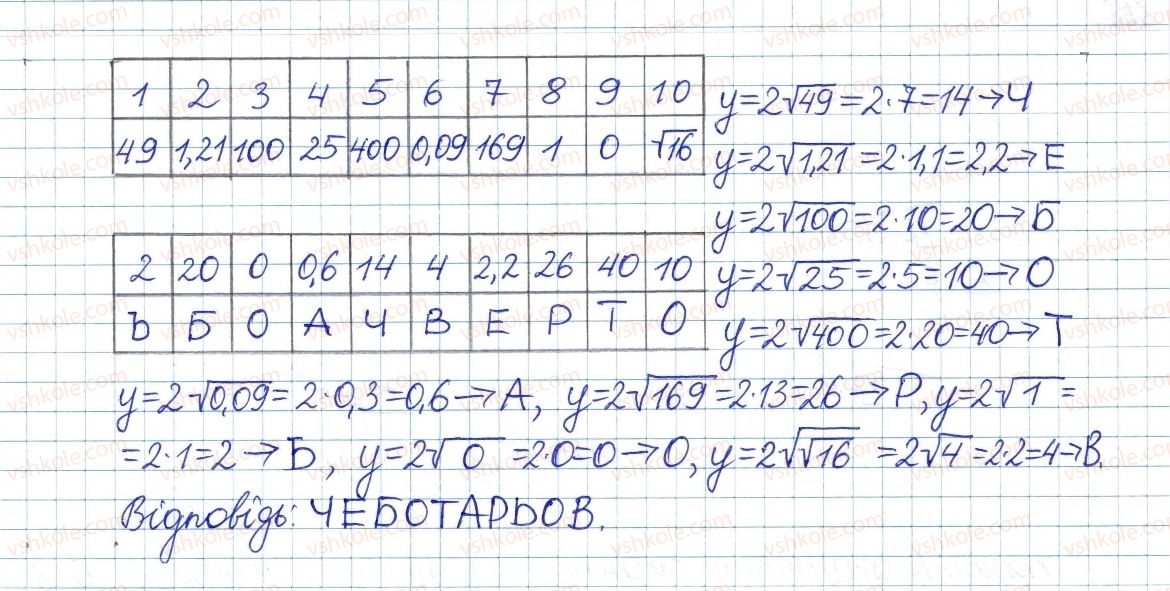 1 2 3 4 5 6 7 8 9 10
49 1,21 100 25 400 0,09 169 1 0 √16
y=2√49=2·7=14→Ч
y=2√1,21=2·1,1=2,2→Е
y=2√100=2·10=20→Б
y=2√25=2·5=10→О
y=2√400=2·20=40→Т
2 20 0 0,6 14 4 2,2 26 40 10
Ъ Б О А Ч В Е Р Т О
y=2√0,09=2·0,3=0,6→А, y=2√169=2·13=26→Р, y=2√1=
=2·1=2→Ь, y=2√0=2·0=0→О, y=2√√16=2√4=2·2=4→В.
Відповідь: ЧЕБОТАРЬОВ.